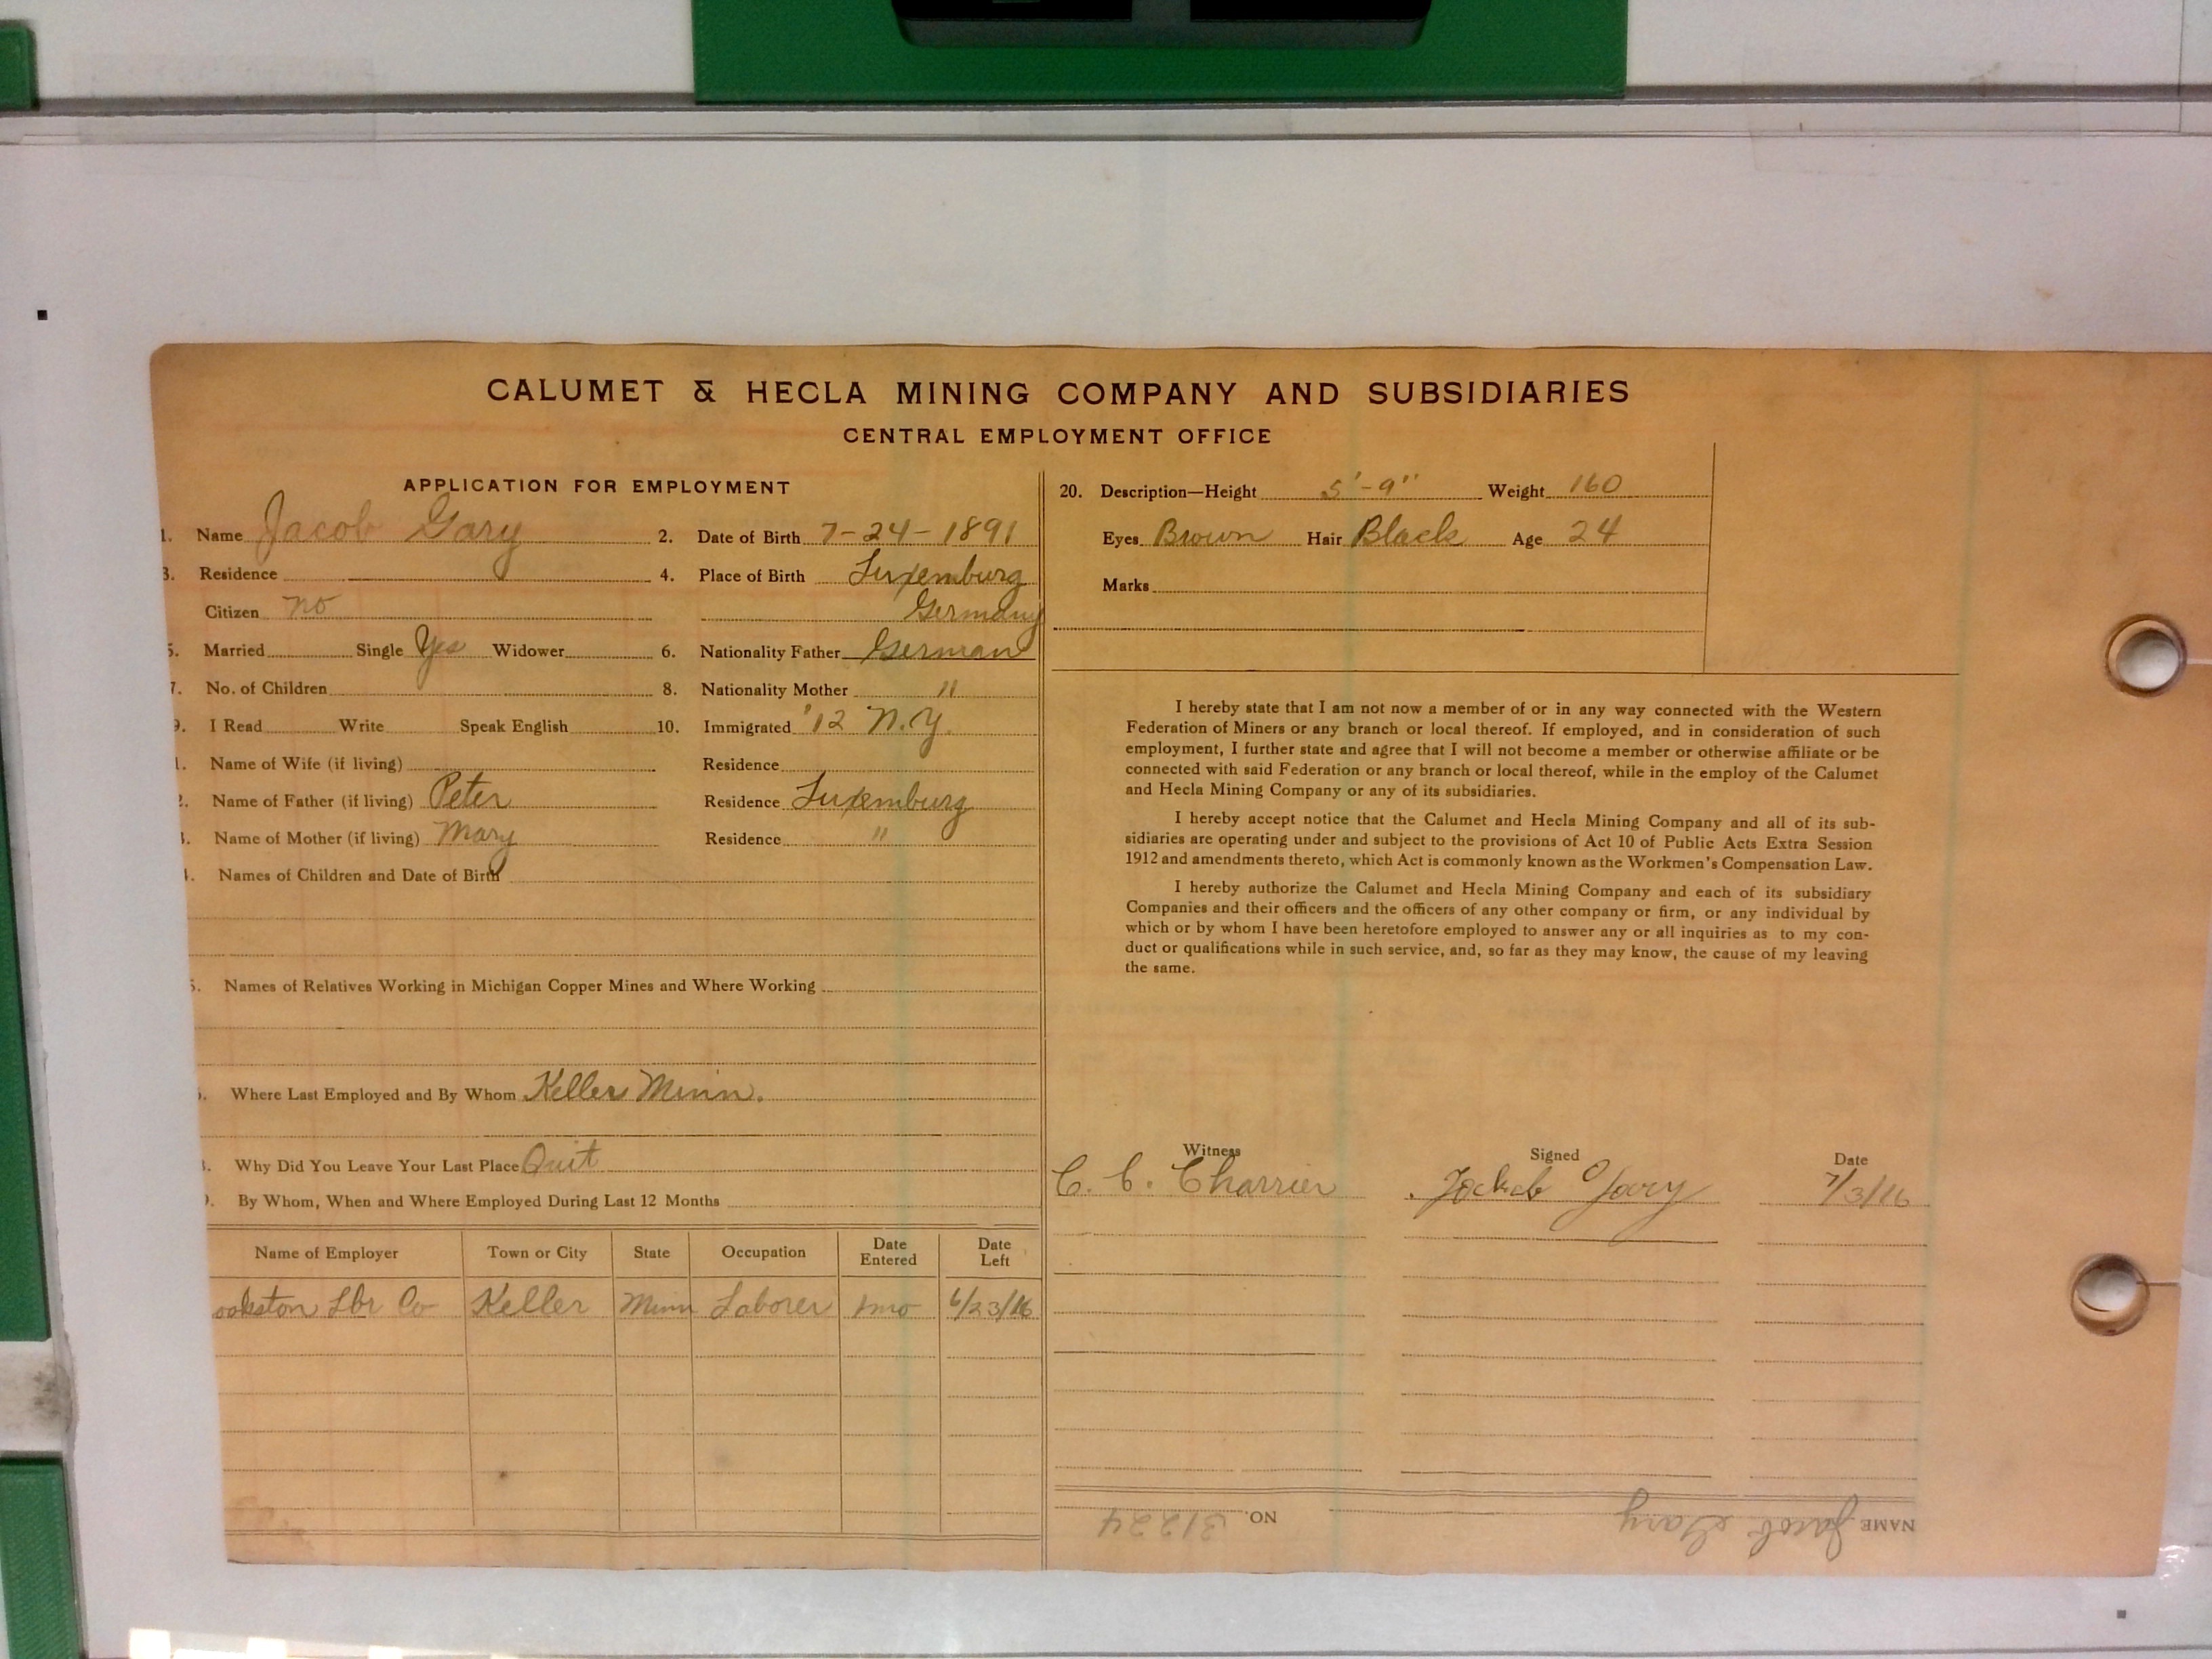 CALUMET & HECLA MINING COMPANY AND SUBSIDIARIES
CENTRAL EMPLOYMENT OFFICE
APPLICATION FOR EMPLOYMENT
1. Name Jacob Gary 2. Date of Birth 7-24-1891
3. Residence 4. Place of Birth Luxemburg
Citizen no Germany
5. Married Single Yes Widower 6. Nationality Father German
7. No. of Children 8. Nationality Mother "
9. I Read Write Speak English 10. Immigrated '12 N.Y.
1. Name of Wife (if living) Residence
2. Name of Father (if living) Peter Residence Luxemburg
3. Name of Mother (if living) Mary Residence "
4. Names of Children and Date of Birth
5. Names of Relatives Working in Michigan Copper Mines and Where Working
Where Last Employed and By Whom Keller Minn.
Why Did You Leave Your Last Place Quit
By Whom, When and Where Employed During Last 12 Months
Name of Employer Town or City State Occupation Date Entered Date Left
ookston Lbr Co Keller Minn Laborer 1 mo 6/23/16
20. Description—Height 5'-9" Weight 160
Eyes Brown Hair Black Age 24
Marks
I hereby state that I am not now a member of or in any way connected with the Western
Federation of Miners or any branch or local thereof. If employed, and in consideration of such
employment, I further state and agree that I will not become a member or otherwise affiliate or be
connected with said Federation or any branch or local thereof, while in the employ of the Calumet
and Hecla Mining Company or any of its subsidiaries.
I hereby accept notice that the Calumet and Hecla Mining Company and all of its sub-
sidiaries are operating under and subject to the provisions of Act 10 of Public Acts Extra Session
1912 and amendments thereto, which Act is commonly known as the Workmen's Compensation Law.
I hereby authorize the Calumet and Hecla Mining Company and each of its subsidiary
Companies and their officers and the officers of any other company or firm, or any individual by
which or by whom I have been heretofore employed to answer any or all inquiries as to my con-
duct or qualifications while in such service, and, so far as they may know, the cause of my leaving
the same.
Witness Signed Date
C. C. Charrier Gary 7/3/16
NAME Jacob Gary NO. 31224